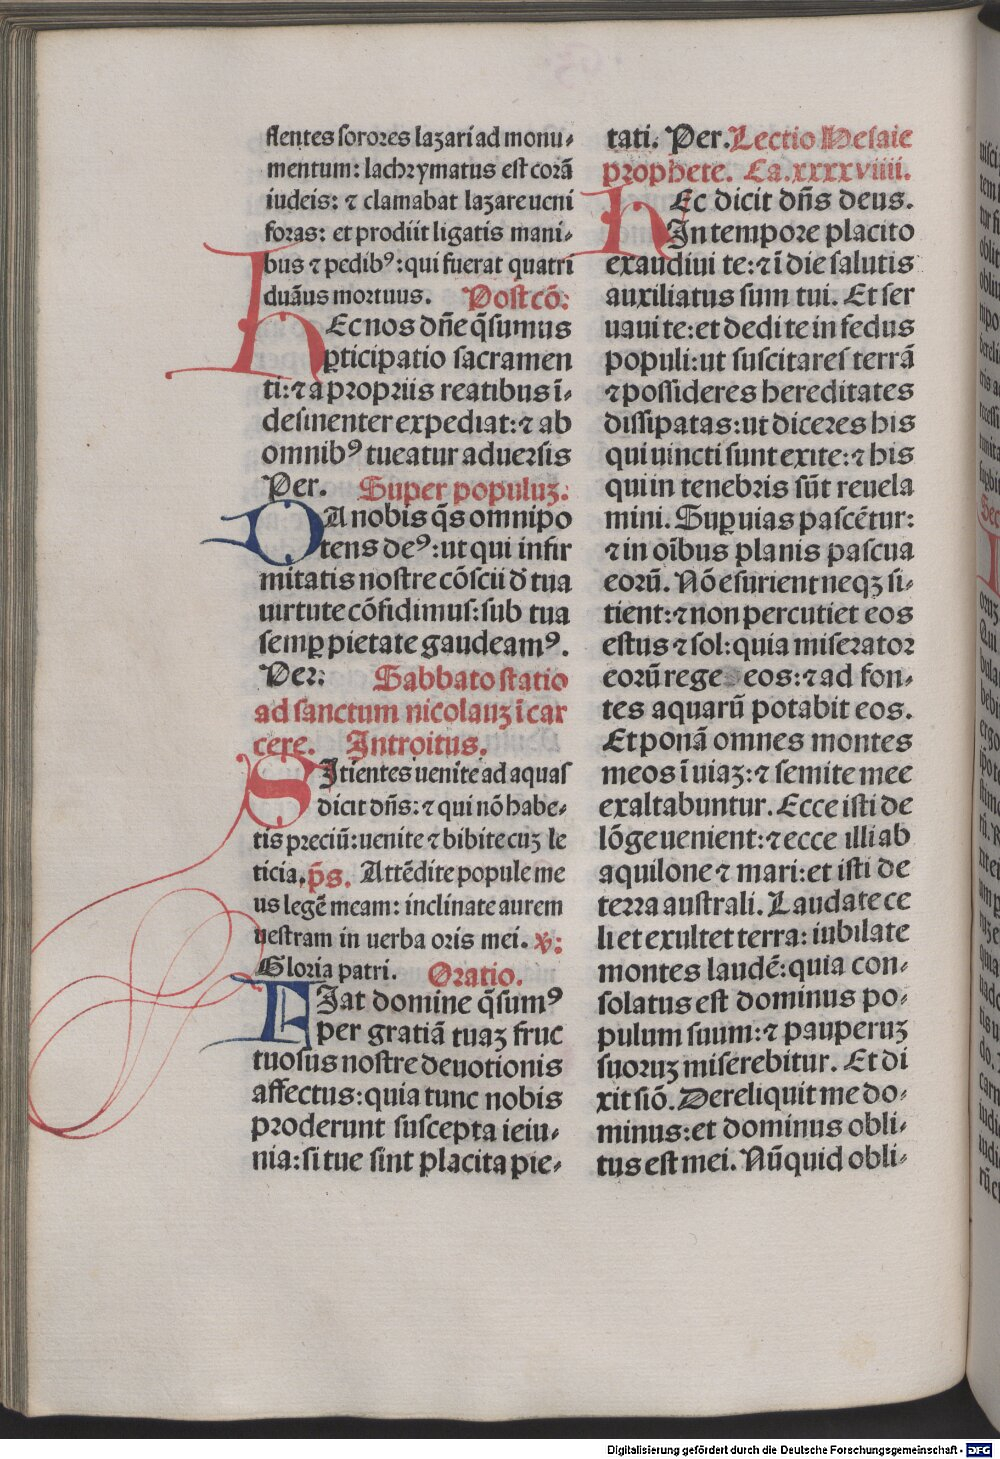 flentes sorores lazari ad monu-
mentum: lachrymatus est corã
iudeis: ⁊ clamabat lazare ueni
foras: et prodiit ligatis mani-
bus ⁊ pedibꝰ: qui fuerat quatri
duãus mortuus. Post cõ:
HEc nos dñe q̃sumus
ꝑticipatio sacramen
ti: ⁊ a propriis reatibus ĩ-
desinenter expediat: ⁊ ab
omnibꝰ tueatur aduersis
Per. Super populuꝫ.
DA nobis q̃s omnipo
tens deꝰ: ut qui infir
mitatis nostre cõscii đ tua
uirtute cõfidimus: sub tua
semꝑ pietate gaudeamꝰ.
Per: Sabbato statio
ad sanctum nicolauꝫ ĩ car
cere. Introitus.
SItientes uenite ad aquas
dicit dñs: ⁊ qui nõ habe-
tis preciũ: uenite ⁊ bibite cuꝫ le
ticia. p̃s. Attẽdite popule me
us legẽ meam: inclinate aurem
uestram in uerba oris mei. v:
Gloria patri. Oratio.
FIat domine q̃sumꝰ
per gratiã tuaꝫ fruc
tuosus nostre deuotionis
affectus: quia tunc nobis
proderunt suscepta ieiu-
nia: si tue sint placita pie-
tati. Per. Lectio Hesaie
prophete. Ca. xxxxviiii.
HEc dicit dñs deus.
In tempore placito
exaudiui te: ⁊ ĩ die salutis
auxiliatus sum tui. Et ser
uaui te: et dedi te in fedus
populi: ut suscitares terrã
⁊ possideres hereditates
dissipatas: ut diceres his
qui uincti sunt exite: ⁊ his
qui in tenebris sũt reuela
mini. Suꝑ uias pascẽtur:
⁊ in oĩbus planis pascua
eorũ. Nõ esurient neqꝫ si-
tient: ⁊ non percutiet eos
estus ⁊ sol: quia miserator
eorũ rege eos: ⁊ ad fon-
tes aquarũ potabit eos.
Et ponã omnes montes
meos ĩ uiaꝫ: ⁊ semite mee
exaltabuntur. Ecce isti de
lõge uenient: ⁊ ecce illi ab
aquilone ⁊ mari: et isti de
terra australi. Laudate ce
li et exultet terra: iubilate
montes laudẽ: quia con-
solatus est dominus po-
pulum suum: ⁊ pauperuꝫ
suoruꝫ miserebitur. Et di
xit siõ. Dereliquit me do-
minus: et dominus obli-
tus est mei. Nũquid obli-
Digitalisierung gefördert durch die Deutsche Forschungsgemeinschaft - DFG